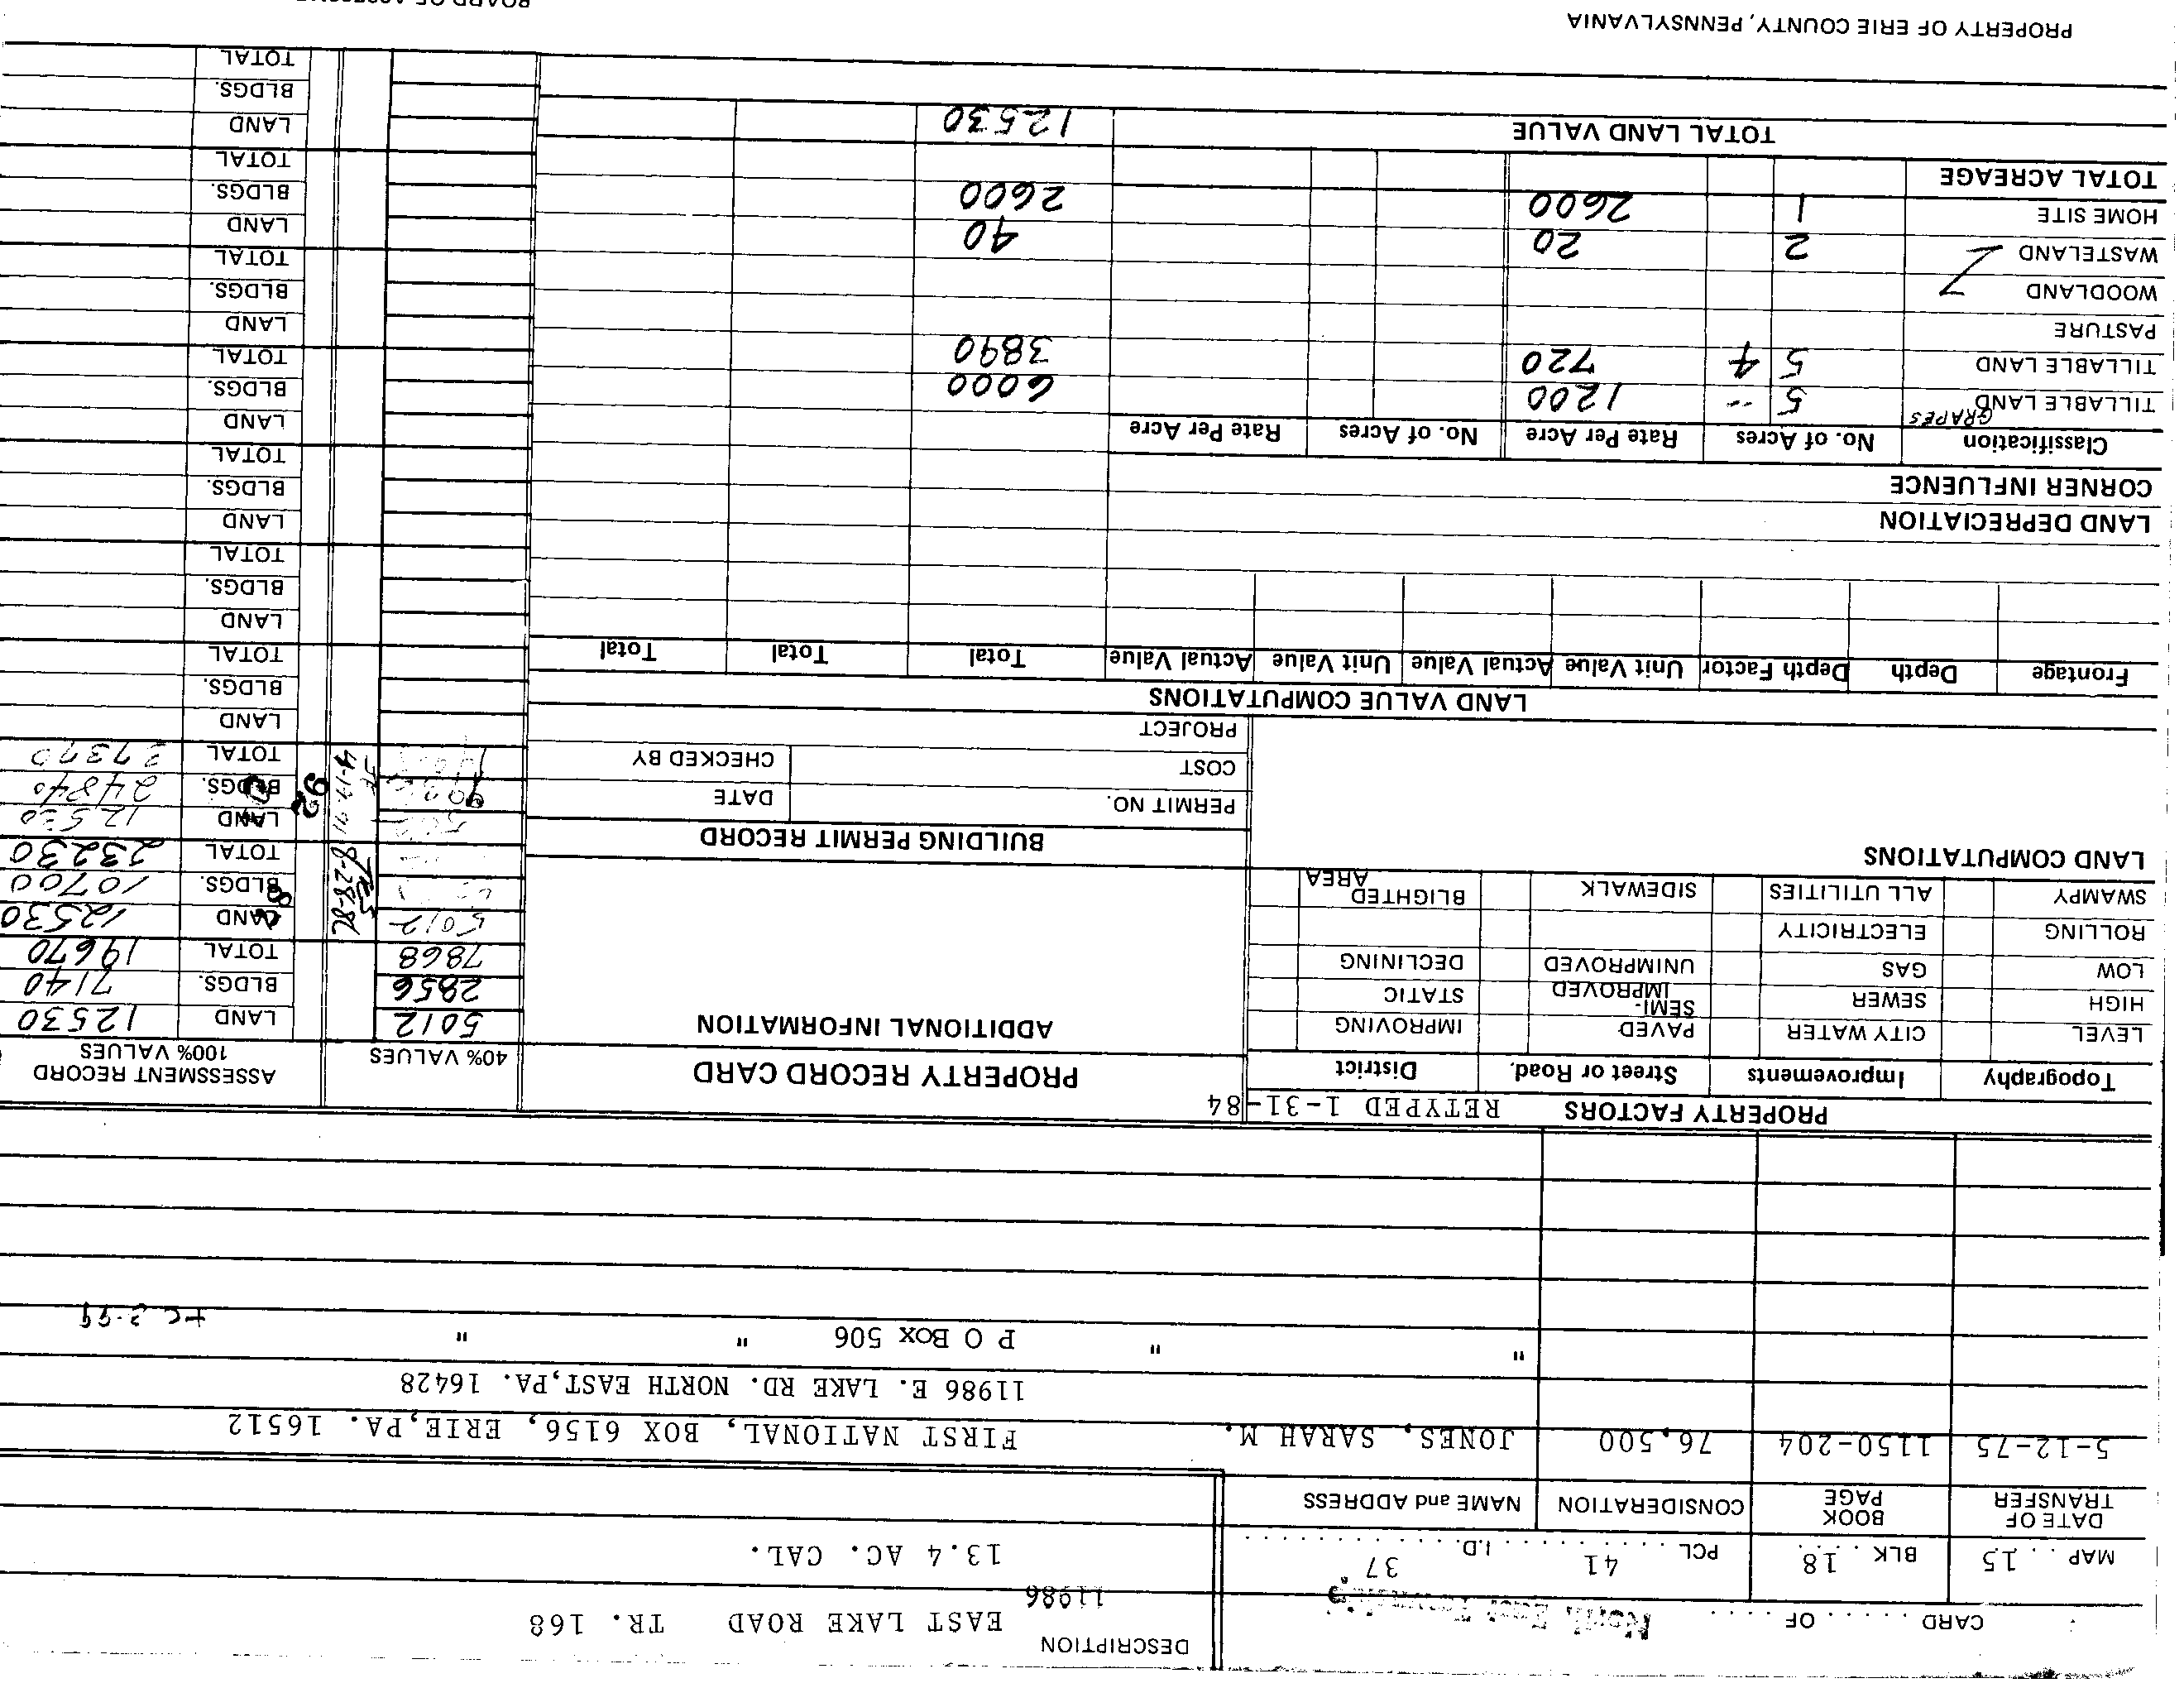 CARD ..... OF .... North East Township
DESCRIPTION
11986 EAST LAKE ROAD TR. 168
13.4 AC. CAL.
MAP . . 15 BLK . . 18 PCL . . . 41 I.D. 37
DATE OF TRANSFER BOOK PAGE CONSIDERATION NAME and ADDRESS
5-12-75 1150-204 76,500 JONES, SARAH M. FIRST NATIONAL, BOX 6156, ERIE,PA. 16512
11986 E. LAKE RD. NORTH EAST,PA. 16428
" " P O Box 506 " "
PROPERTY FACTORS RETYPED 1-31-84
Topography Improvements Street or Road. District
LEVEL CITY WATER PAVED IMPROVING
HIGH SEWER SEMI-IMPROVED STATIC
LOW GAS UNIMPROVED DECLINING
ROLLING ELECTRICITY
SWAMPY ALL UTILITIES SIDEWALK BLIGHTED AREA
LAND COMPUTATIONS
PROPERTY RECORD CARD
ADDITIONAL INFORMATION
BUILDING PERMIT RECORD
PERMIT NO. DATE
COST CHECKED BY
PROJECT
40% VALUES
ASSESSMENT RECORD
100% VALUES
5012 LAND 12530
2856 BLDGS. 7140
7868 TOTAL 19670
5012 LAND 12530
BLDGS. 10700
TOTAL 23230
8-28-86
LAND 12530
92 BLDGS. 24840
TOTAL 37370
4-17-91
LAND
BLDGS.
TOTAL
LAND
BLDGS.
TOTAL
LAND
BLDGS.
TOTAL
LAND
BLDGS.
TOTAL
LAND
BLDGS.
TOTAL
LAND
BLDGS.
TOTAL
LAND
BLDGS.
TOTAL
LAND VALUE COMPUTATIONS
Frontage Depth Depth Factor Unit Value Actual Value Unit Value Actual Value Total Total Total
LAND DEPRECIATION
CORNER INFLUENCE
Classification No. of Acres Rate Per Acre No. of Acres Rate Per Acre
TILLABLE LAND GRAPES 5 -- 1200 6000
TILLABLE LAND 5 4 720 3890
PASTURE
WOODLAND
WASTELAND 2 20 40
HOME SITE 1 2600 2600
TOTAL ACREAGE
TOTAL LAND VALUE 12530
PROPERTY OF ERIE COUNTY, PENNSYLVANIA
BOARD OF